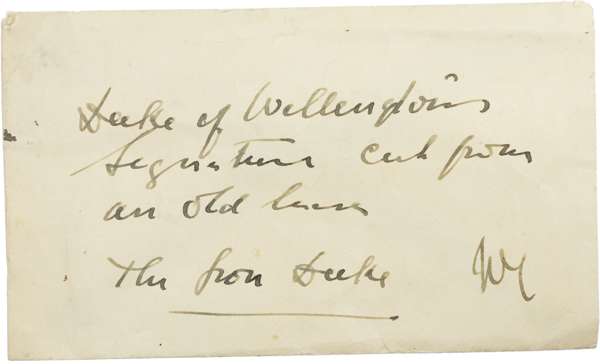 Duke of Wellington's
signature cut from
an old lease
The Iron Duke